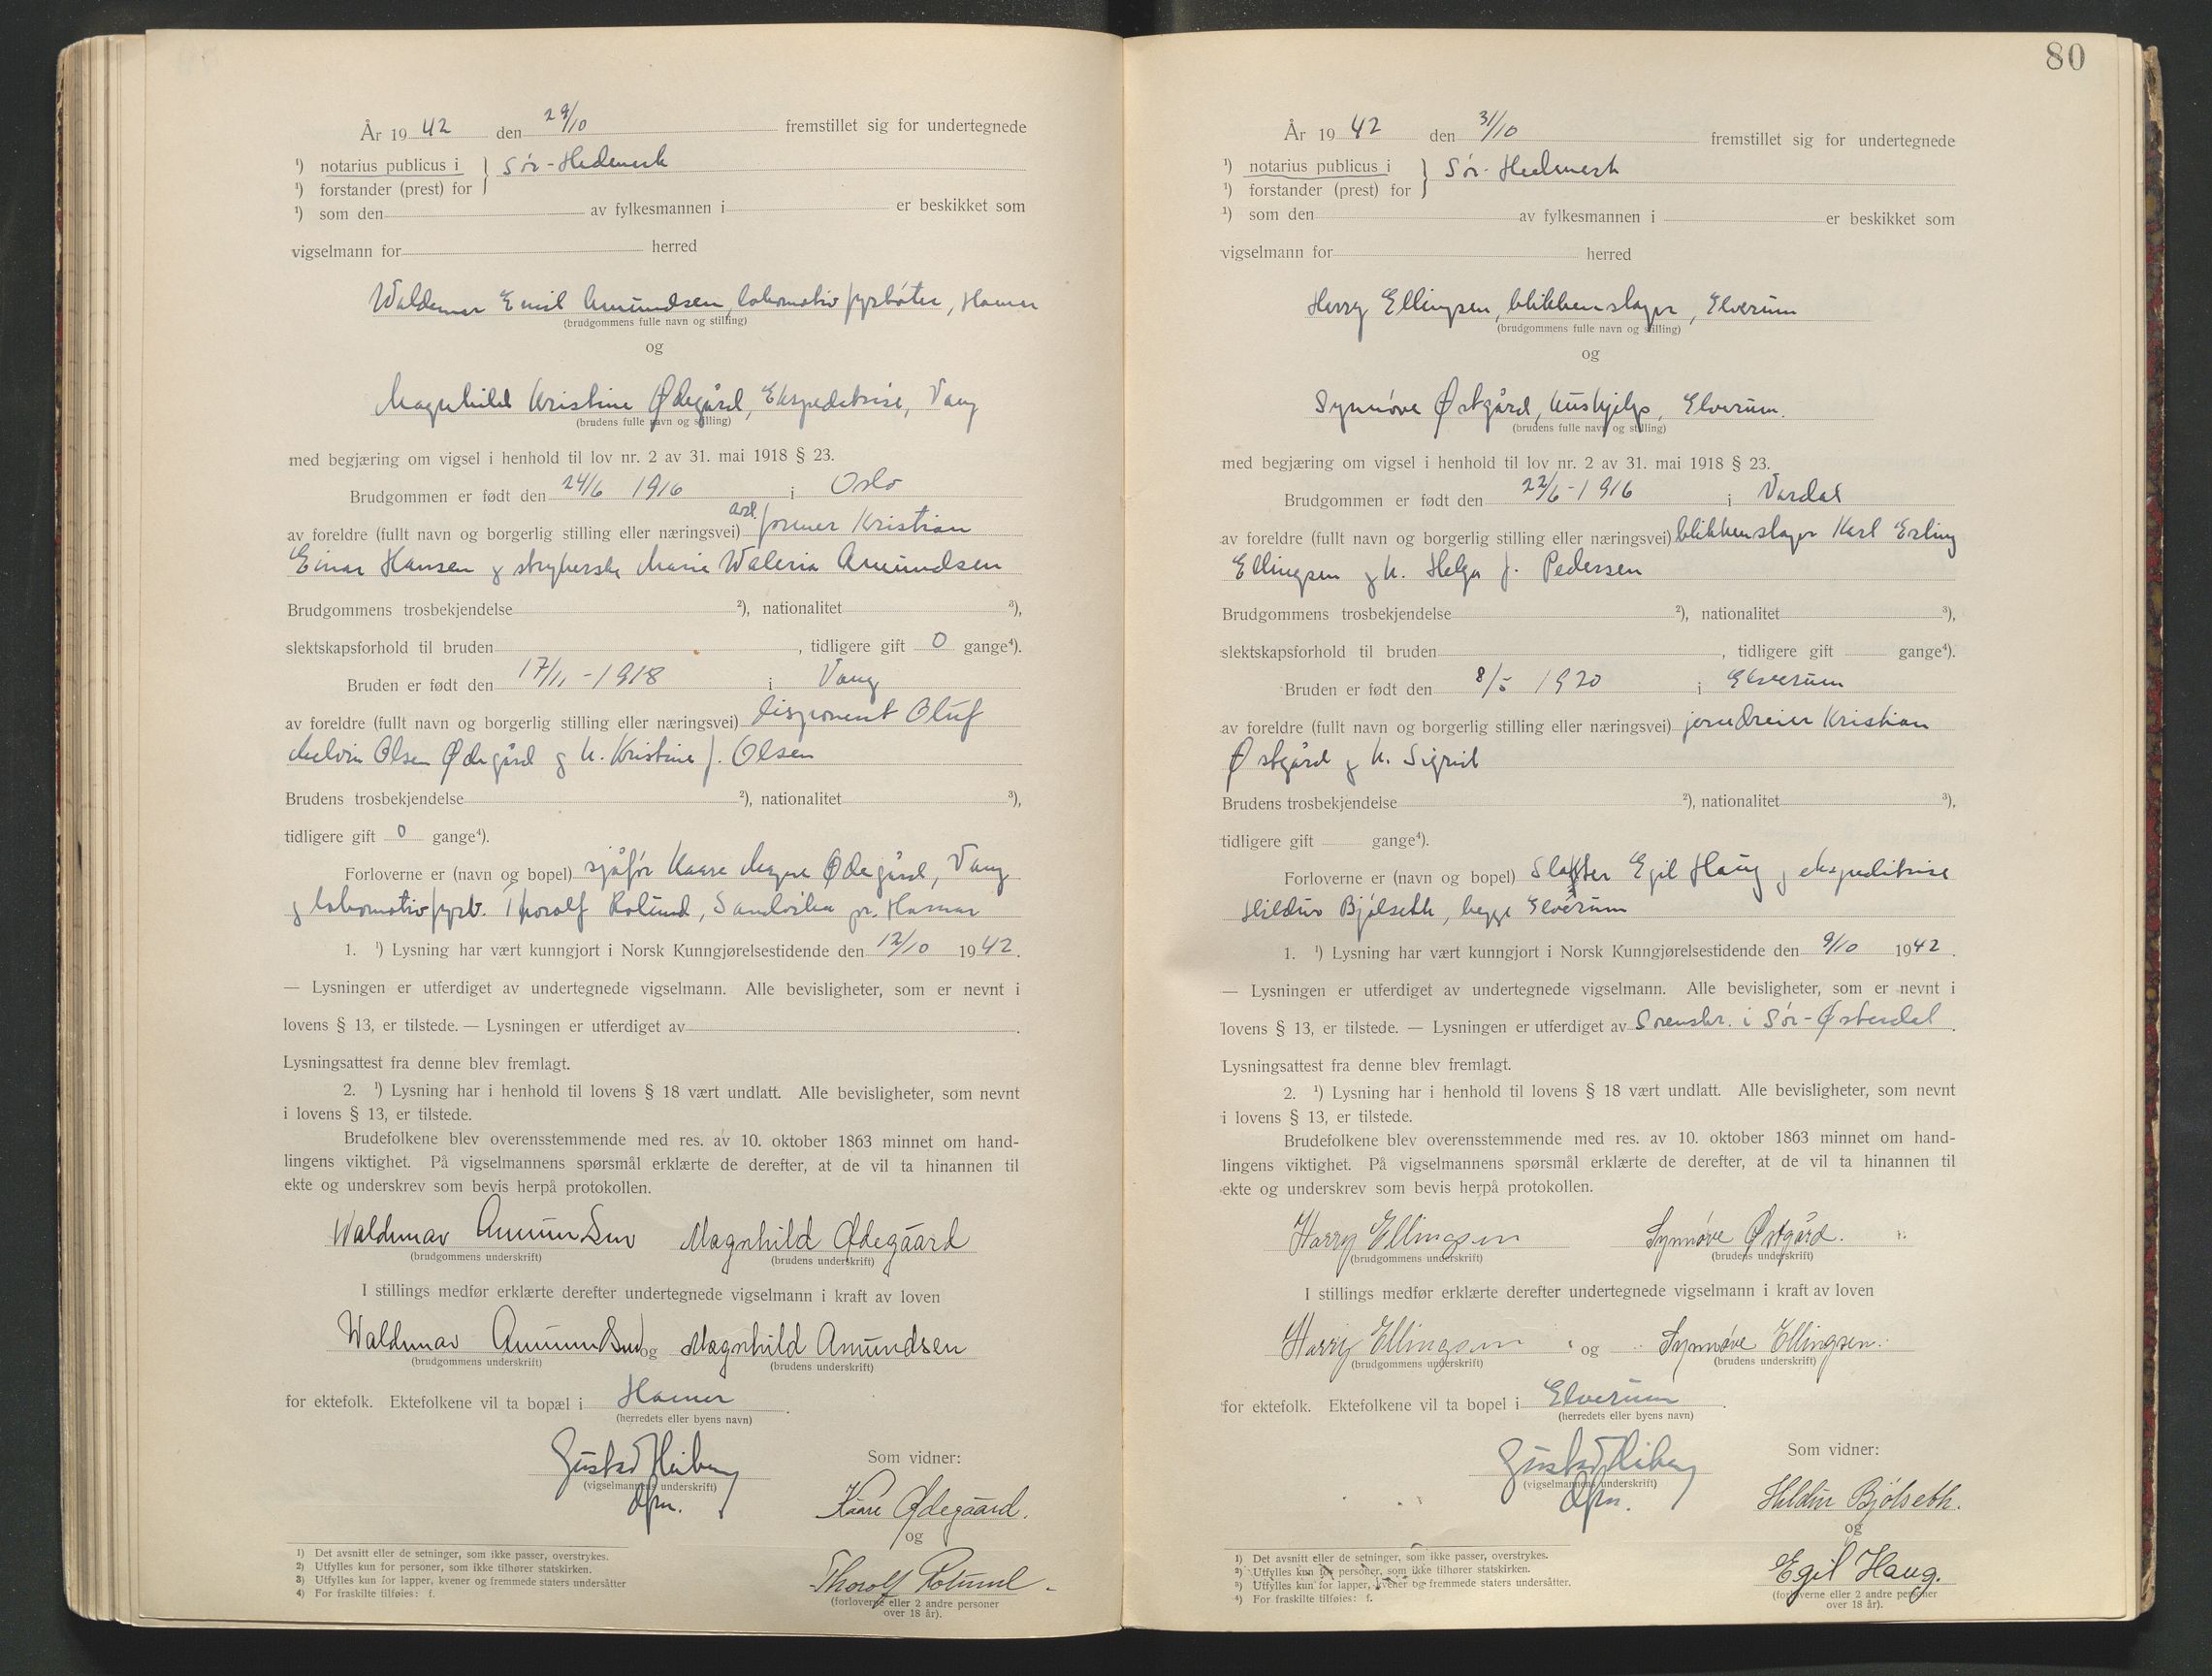 År 19 42 den 29/10 fremstillet sig for undertegnede
¹) notarius publicus i } Sør-Hedmark
¹) forstander (prest) for
¹) som den av fylkesmannen i er beskikket som
vigselmann for herred
Waldemar Emil Amundsen, lokomotivfyrbøter, Hamar
(brudgommens fulle navn og stilling)
og
Magnhild Kristine Ødegård, Ekspeditrise, Vang
(brudens fulle navn og stilling)
med begjæring om vigsel i henhold til lov nr. 2 av 31. mai 1918 § 23.
Brudgommen er født den 24/6 1916 i Oslo
av foreldre (fullt navn og borgerlig stilling eller næringsvei) former Kristian
Einar Hansen og strykerske Marie Waleria Amundsen
Brudgommens trosbekjendelse ²), nationalitet ³),
slektskapsforhold til bruden , tidligere gift 0 gange⁴).
Bruden er født den 17/11 - 1918 i Vang
av foreldre (fullt navn og borgerlig stilling eller næringsvei) disponent Oluf
Melvin Olsen Ødegård og h. Kristine f. Olsen
Brudens trosbekjendelse ²), nationalitet ³),
tidligere gift 0 gange⁴).
Forloverne er (navn og bopel) sjåfør Kaare Magne Ødegård, Vang
og lokomotivfyrb. Thorolf Rolund, Sandvika pr. Hamar
1. ¹) Lysning har vært kunngjort i Norsk Kunngjørelsestidende den 12/10 1942.
— Lysningen er utferdiget av undertegnede vigselmann. Alle bevisligheter, som er nevnt i
lovens § 13, er tilstede. — Lysningen er utferdiget av .
Lysningsattest fra denne blev fremlagt.
2. ¹) Lysning har i henhold til lovens § 18 vært undlatt. Alle bevisligheter, som nevnt
i lovens § 13, er tilstede.
Brudefolkene blev overensstemmende med res. av 10. oktober 1863 minnet om hand-
lingens viktighet. På vigselmannens spørsmål erklærte de derefter, at de vil ta hinannen til
ekte og underskrev som bevis herpå protokollen.
Waldemar Amundsen Magnhild Ødegaard
(brudgommens underskrift) (brudens underskrift)
I stillings medfør erklærte derefter undertegnede vigselmann i kraft av loven
Waldemar Amundsen og Magnhild Amundsen
(brudgommens underskrift) (brudens underskrift)
for ektefolk. Ektefolkene vil ta bopæl i Hamar.
(herredets eller byens navn)
Gustav Heiberg Som vidner:
(vigselmannens underskrift)
dfm. Kaare Ødegaard.
og
Thorolf Rolund
(forloverne eller 2 andre personer
over 18 år).
1) Det avsnitt eller de setninger, som ikke passer, overstrykes.
2) Utfylles kun for personer, som ikke tilhører statskirken.
3) Utfylles kun for lapper, kvener og fremmede staters undersåtter
4) For fraskilte tilføies: f.
80
År 19 42 den 31/10 fremstillet sig for undertegnede
¹) notarius publicus i } Sør-Hedmark
¹) forstander (prest) for
¹) som den av fylkesmannen i er beskikket som
vigselmann for herred
Harry Ellingsen, blikkenslager, Elverum
(brudgommens fulle navn og stilling)
og
Synnøve Østgård, hushjelp, Elverum.
(brudens fulle navn og stilling)
med begjæring om vigsel i henhold til lov nr. 2 av 31. mai 1918 § 23.
Brudgommen er født den 22/6 - 1916 i Vardal
av foreldre (fullt navn og borgerlig stilling eller næringsvei) blikkenslager Karl Erling
Ellingsen og h. Helga f. Pedersen
Brudgommens trosbekjendelse ²), nationalitet ³),
slektskapsforhold til bruden , tidligere gift gange⁴).
Bruden er født den 8/5 1920 i Elverum
av foreldre (fullt navn og borgerlig stilling eller næringsvei) jerndreier Kristian
Østgård og h. Sigrid
Brudens trosbekjendelse ²), nationalitet ³),
tidligere gift gange⁴).
Forloverne er (navn og bopel) Slakter Egil Haug og ekspeditrise
Hildur Bjølseth, begge Elverum
1. ¹) Lysning har vært kunngjort i Norsk Kunngjørelsestidende den 9/10 1942.
— Lysningen er utferdiget av undertegnede vigselmann. Alle bevisligheter, som er nevnt i
lovens § 13, er tilstede. — Lysningen er utferdiget av Sorenskr. i Sør-Østerdal.
Lysningsattest fra denne blev fremlagt.
2. ¹) Lysning har i henhold til lovens § 18 vært undlatt. Alle bevisligheter, som nevnt
i lovens § 13, er tilstede.
Brudefolkene blev overensstemmende med res. av 10. oktober 1863 minnet om hand-
lingens viktighet. På vigselmannens spørsmål erklærte de derefter, at de vil ta hinannen til
ekte og underskrev som bevis herpå protokollen.
Harry Ellingsen Synnøve Østgård.
(brudgommens underskrift) (brudens underskrift)
I stillings medfør erklærte derefter undertegnede vigselmann i kraft av loven
Harry Ellingsen og Synnøve Ellingsen.
(brudgommens underskrift) (brudens underskrift)
for ektefolk. Ektefolkene vil ta bopel i Elverum.
(herredets eller byens navn)
Gustav Heiberg Som vidner:
(vigselmannens underskrift)
dfm. Hildur Bjølseth.
og
Egil Haug.
(forloverne eller 2 andre personer
over 18 år).
1) Det avsnitt eller de setninger, som ikke passer, overstrykes.
2) Utfylles kun for personer, som ikke tilhører statskirken.
3) Utfylles kun for lapper, kvener og fremmede staters undersåtter.
4) For fraskilte tilføies: f.